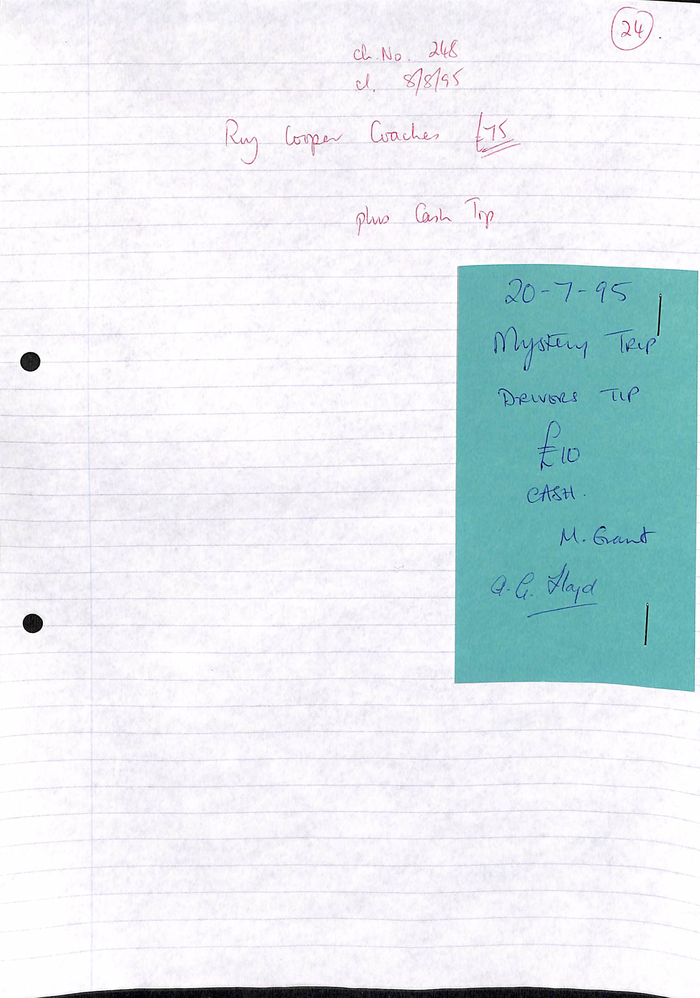 24.
Ch. No. 248
cl. 8/8/95
Roy Cooper Coaches £75
plus Cash Tip
20-7-95
Mystery Trip
DRIVERS TIP
£10
CASH.
M. Grant
A. G. Lloyd